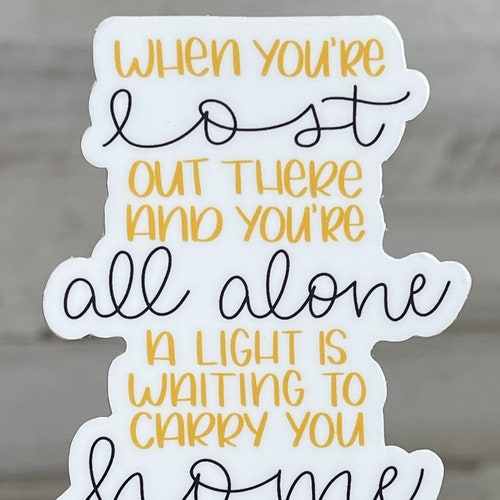 WHEN YOU'RE
lost
OUT THERE
AND YOU'RE
all alone
A LIGHT IS
WAITING TO
CARRY YOU
home